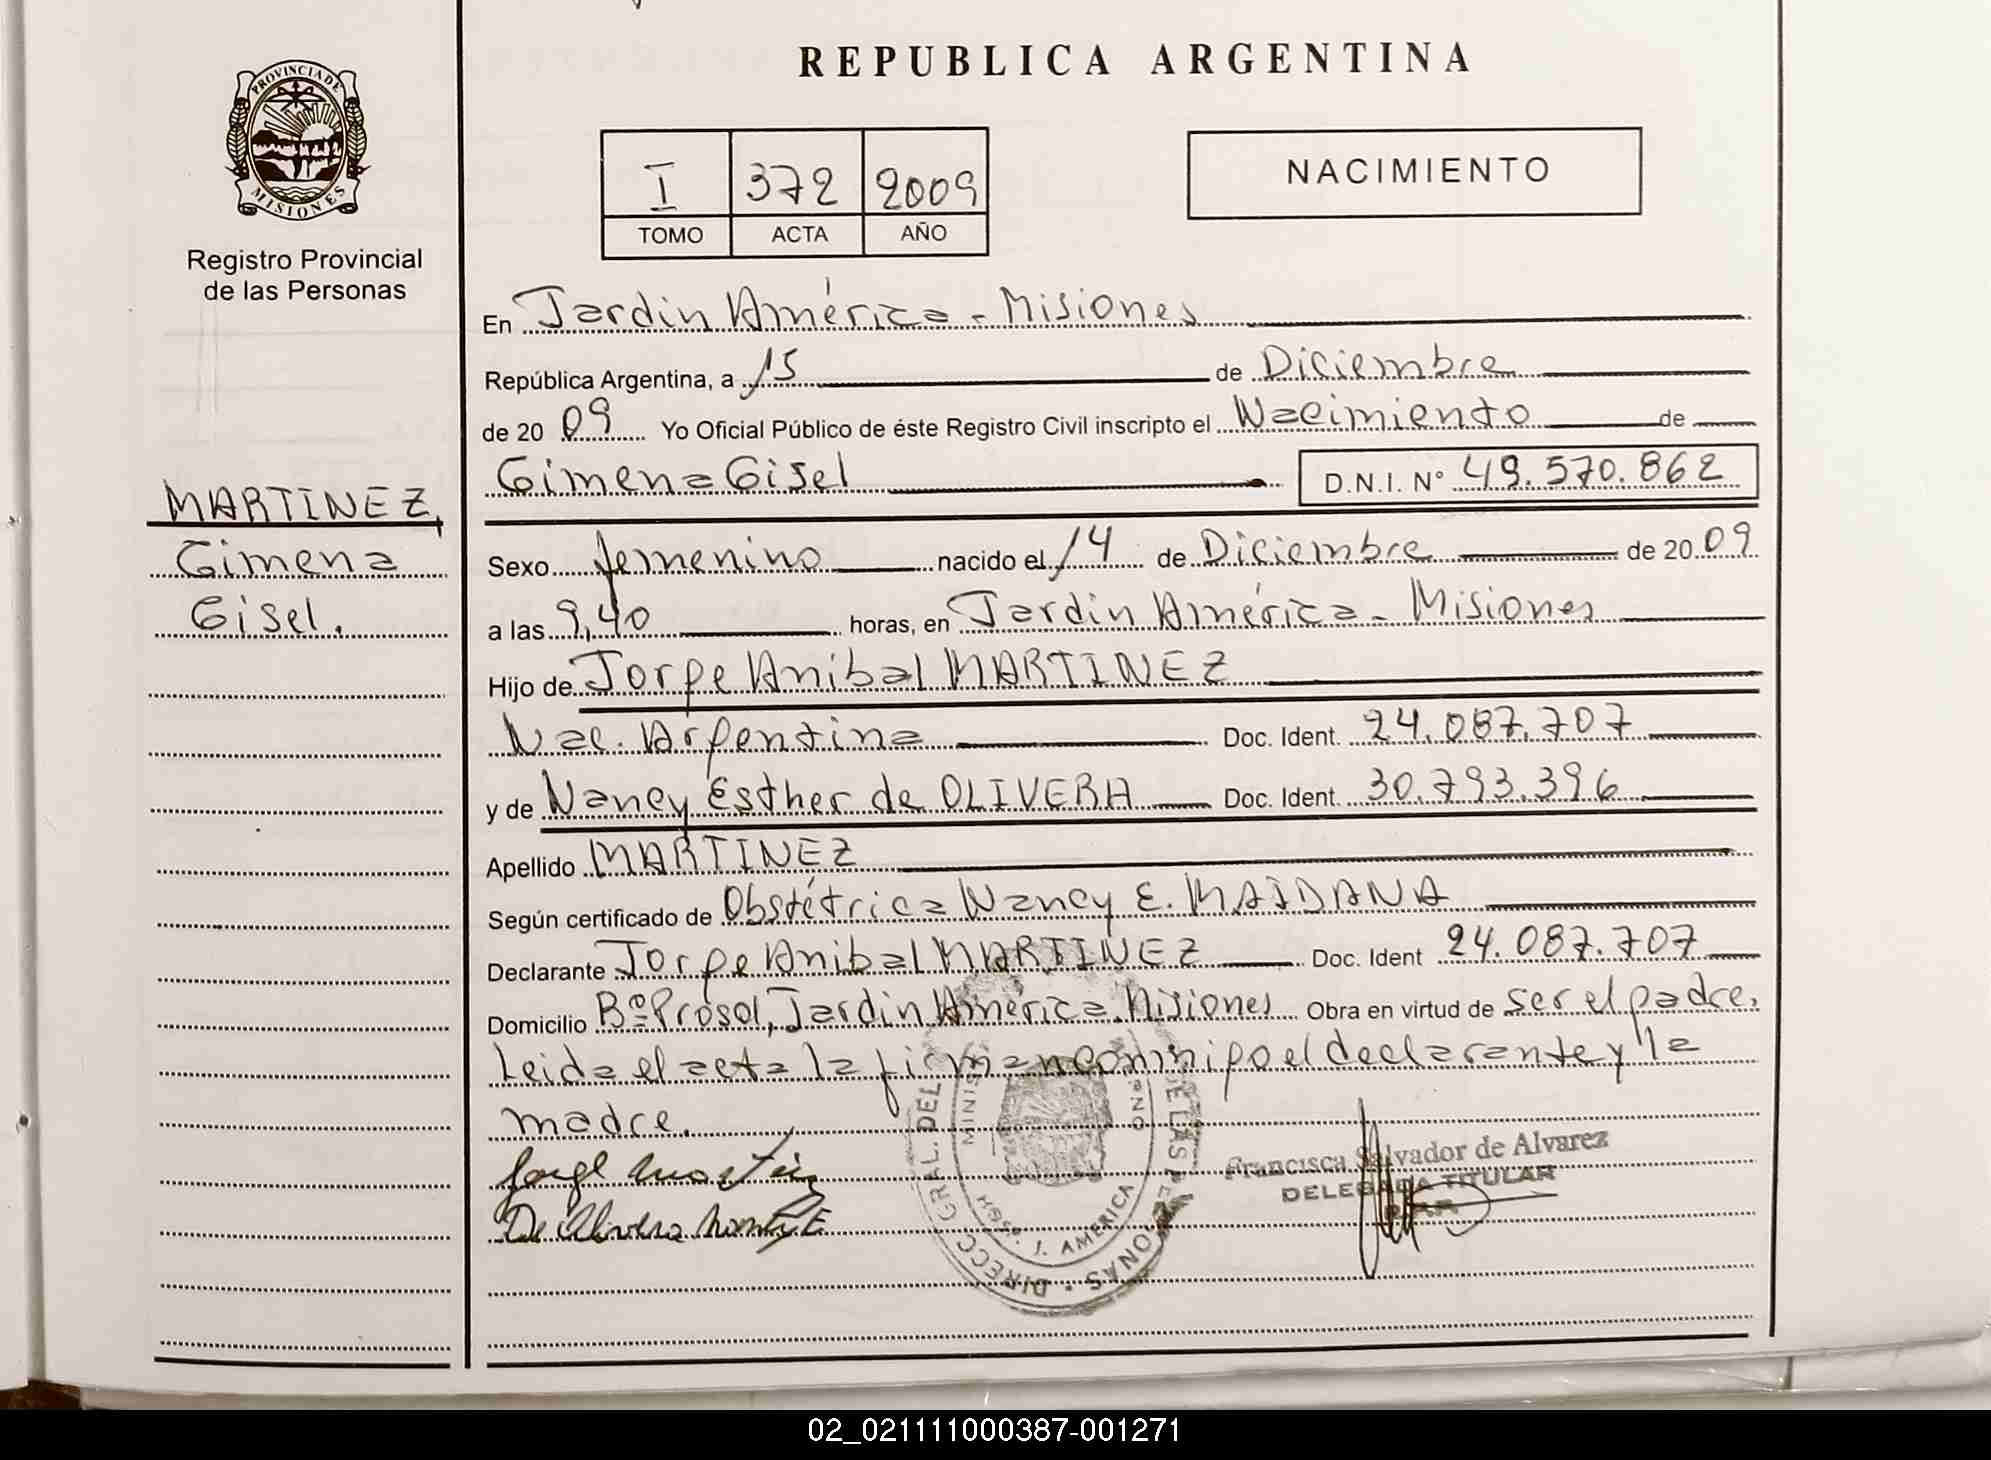 REPUBLICA ARGENTINA
PROVINCIA DE
MISIONES
Registro Provincial
de las Personas
I 372 2009
TOMO ACTA AÑO
NACIMIENTO
MARTINEZ,
Gimena
Gisel.
En Jardin América - Misiones
República Argentina, a 15 de Diciembre
de 20 09 Yo Oficial Público de éste Registro Civil inscripto el Nacimiento de
Gimena Gisel D.N.I. N° 49.570.862
Sexo femenino nacido el 14 de Diciembre de 20 09
a las 9,40 horas, en Jardin América - Misiones
Hijo de Jorge Anibal MARTINEZ
Nac. Argentina Doc. Ident. 24.087.707
y de Nancy Esther de OLIVERA Doc. Ident. 30.793.396
Apellido MARTINEZ
Según certificado de Obstétrica Nancy E. MAIDANA
Declarante Jorge Anibal MARTINEZ Doc. Ident 24.087.707
Domicilio Bº Prosol, Jardin América. Misiones Obra en virtud de ser el padre.
Leida el acta la firman conmigo el declarante y la
madre.
Jorge Martinez
De Olivera Nancy E
Francisca Salvador de Alvarez
DELEGADA TITULAR
DIRECC GRAL. DEL DE LAS PERSONAS
J. AMERICA
02_021111000387-001271